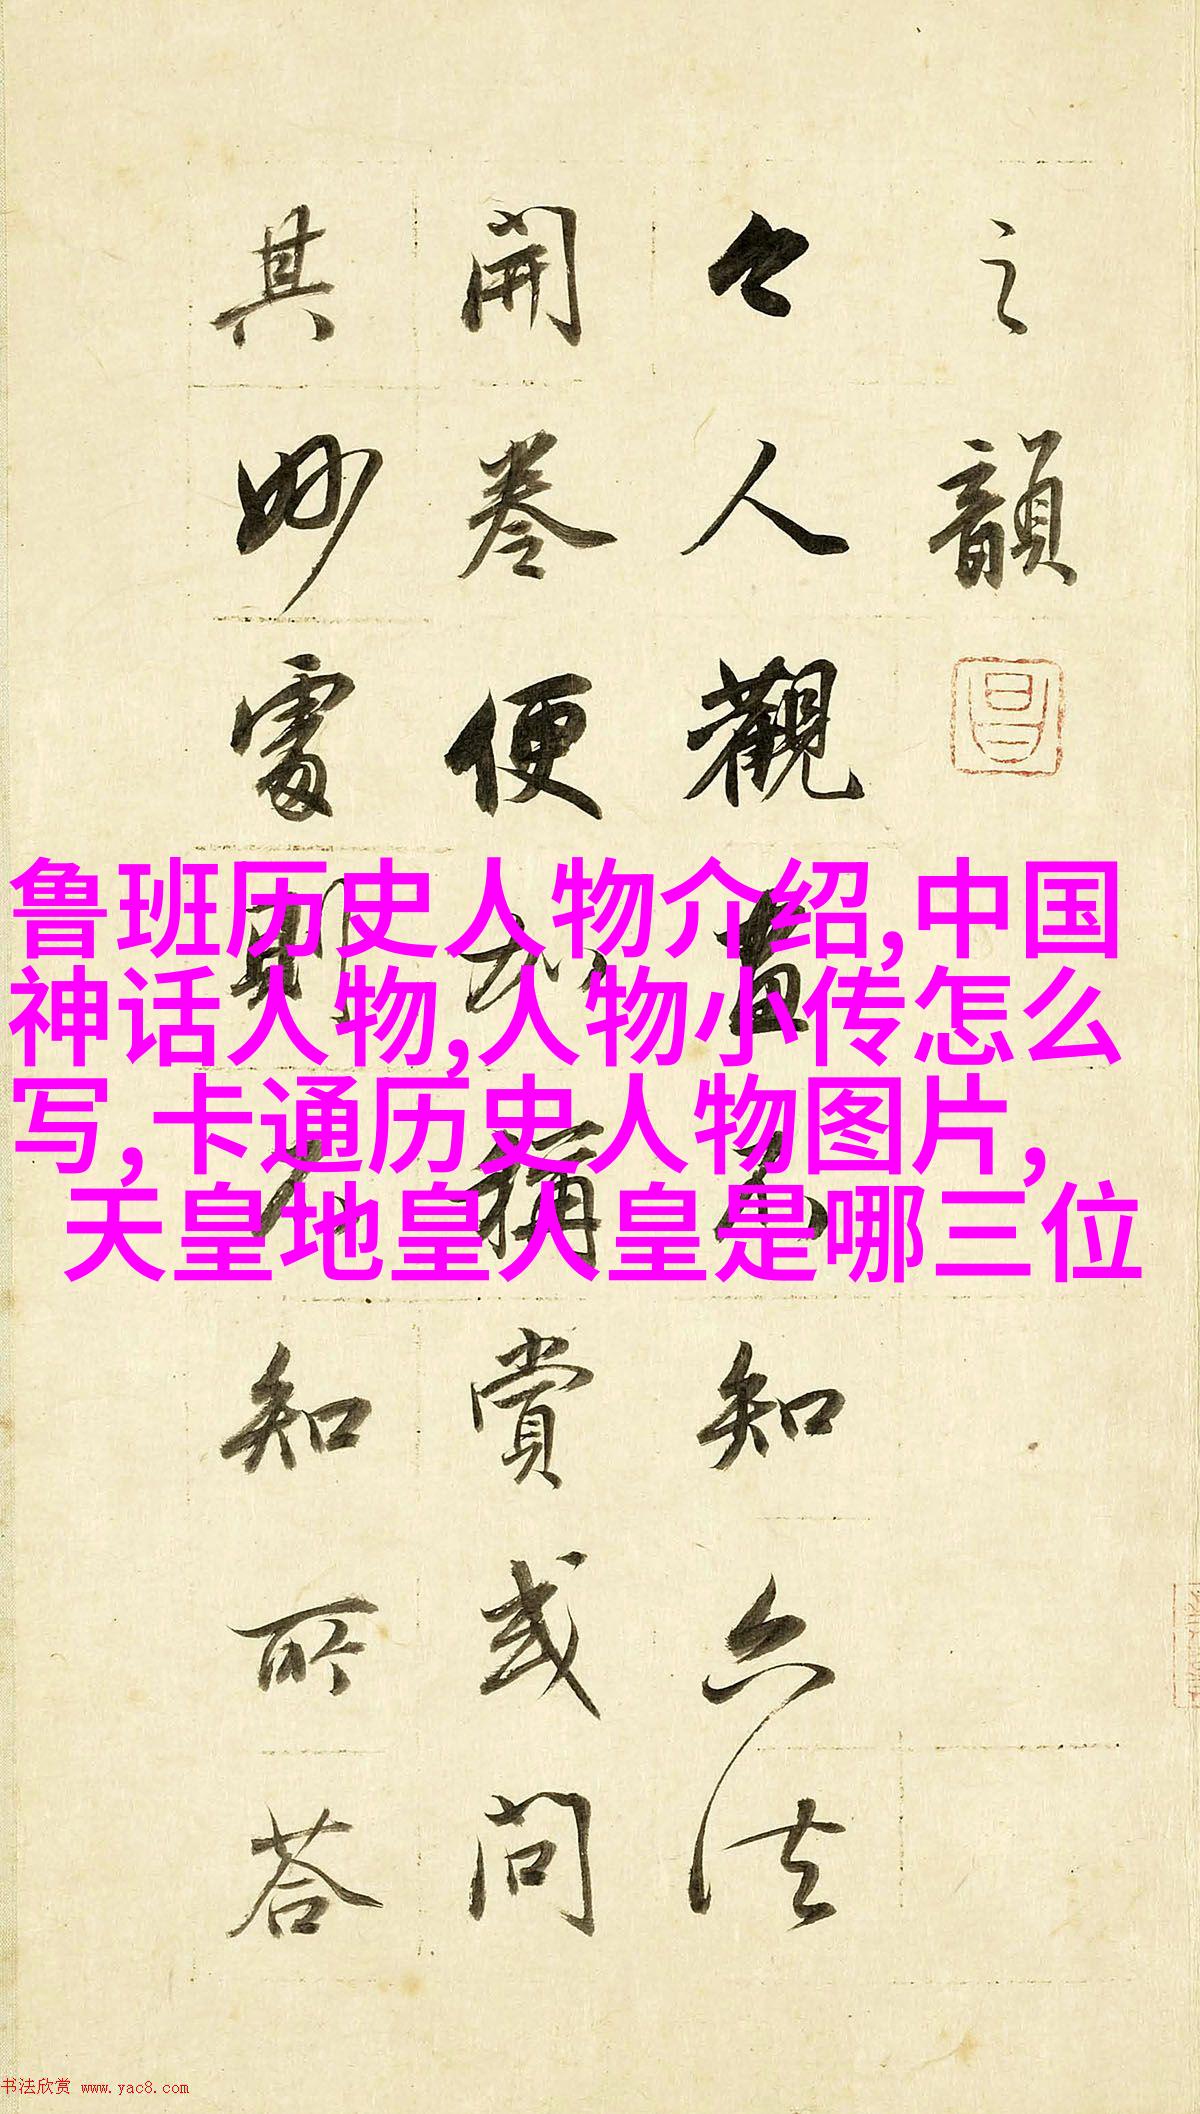 之韻
今人觀畫不知六法
開卷便加稱賞或問
其妙處則不知所答
鲁班历史人物介绍,中国
神话人物,人物小传怎么
写,卡通历史人物图片,
天皇地皇人皇是哪三位
书法欣赏 www.yac8.com